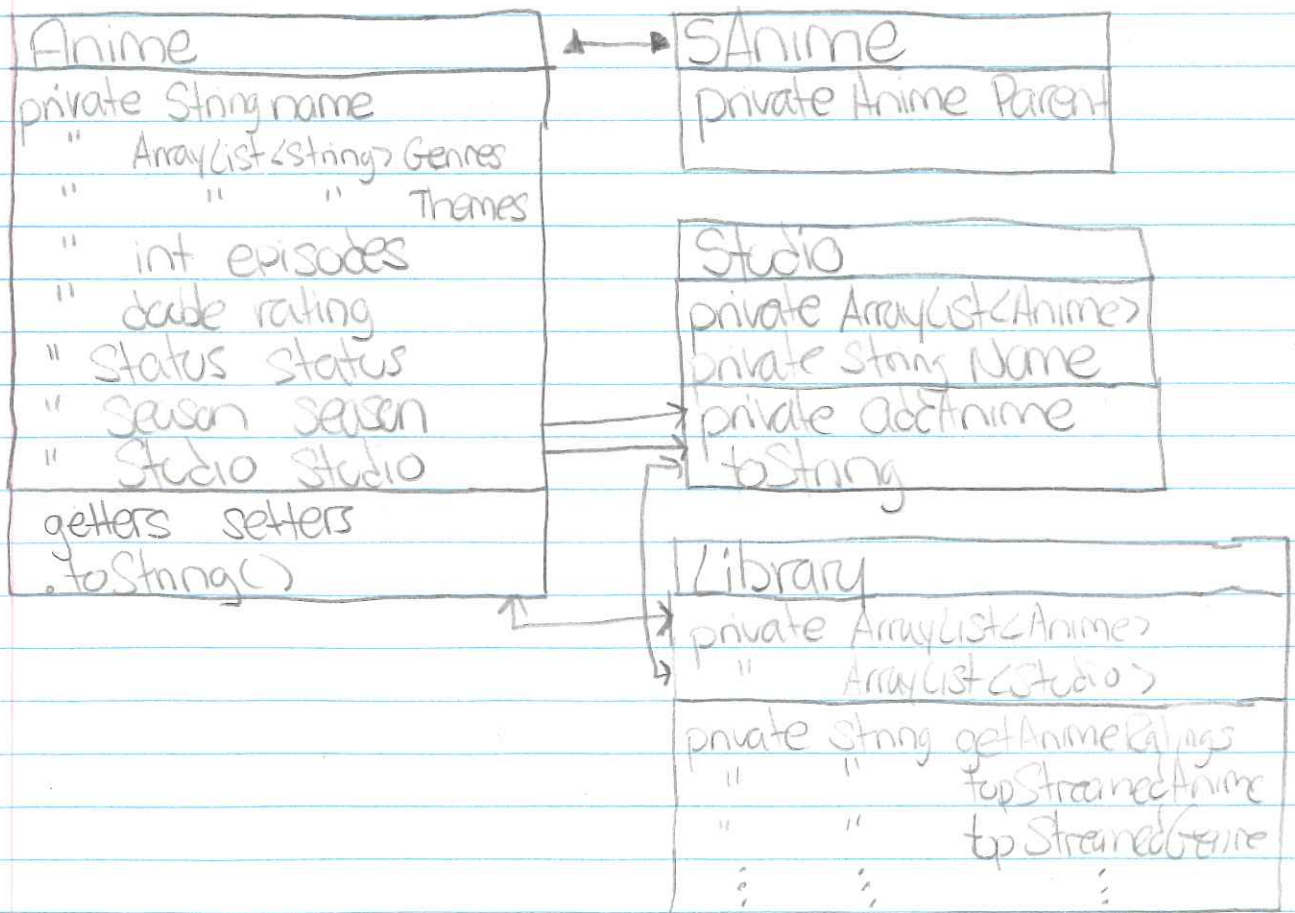 Anime
private String name
" ArrayList<String> Genres
" " " Themes
" int episodes
" double rating
" Status status
" Season season
" Studio Studio
getters setters
.toString()
SAnime
private Anime Parent
Studio
private ArrayList<Anime>
private String Name
private addAnime
toString
Library
private ArrayList<Anime>
" ArrayList<Studio>
private String getAnimeRatings
" " topStreamedAnime
" " topStreamedGenre
: : :